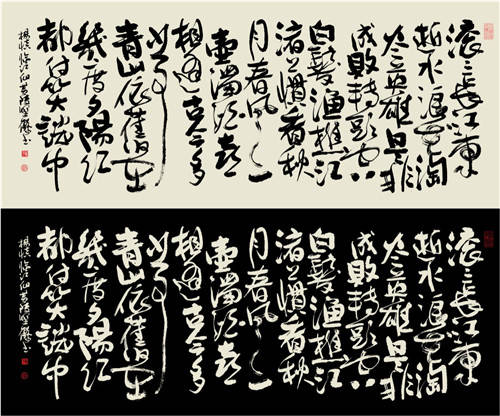 滚々長江東
逝水浪花淘
尽英雄是非
成敗轉頭空
白髮漁樵江
渚上慣看秋
月春風一
壺濁酒喜
相逢古今多
少事
青山依舊在
幾度夕陽红
都付笑談中
楊慎臨江仙
滚々長江東
逝水浪花淘
尽英雄是非
成敗轉頭空
白髮漁樵江
渚上慣看秋
月春風一
壺濁酒喜
相逢古今多
少事
青山依舊在
幾度夕陽红
都付笑談中
楊慎臨江仙